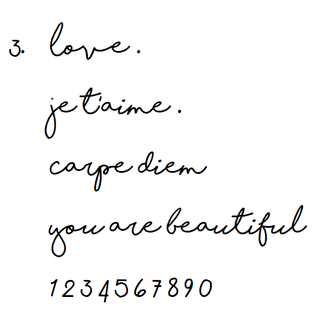 3. love.
je t'aime.
carpe diem
you are beautiful
1234567890